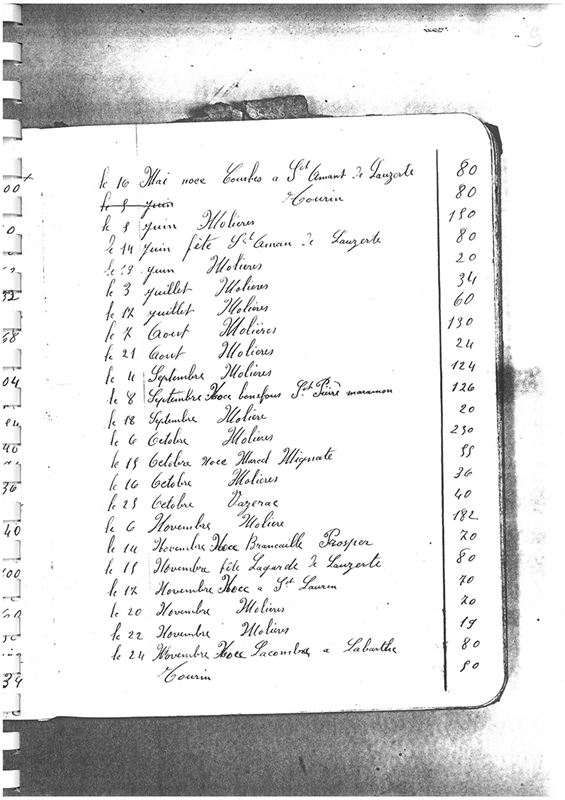 9
le 16 Mai noce Combes a St Amant de Lauzerte 80
le 5 juin Tourin 80
le 5 juin Molieres 150
le 14 Juin fête St Aman de Lauzerte 80
le 19 juin Molières 20
le 3 juillet Molieres 34
le 17 juillet Molieres 60
le 7 Aout Molières 130
le 21 Aout Molieres 24
le 4 Septembre Molières 124
le 8 Septembre Noce bonefous St Pierre 126
le 18 Septembre Moliere 20
le 6 Octobre Molières 230
le 15 Octobre noce Marcel Mignate 55
le 16 Octobre Molières 36
le 25 Octobre Vazerac 40
le 6 Novembre Molière 182
le 14 Novembre Noce Brancaille Prosper 70
le 15 Novembre fête Lagarde de Lauzerte 80
le 17 Novembre Noce a St Laurin 70
le 20 Novembre Molières 70
le 22 Novembre Molières 19
le 24 Novembre Noce Lacombre a Labarthe 80
Tourin 50
04
40
36
40
34